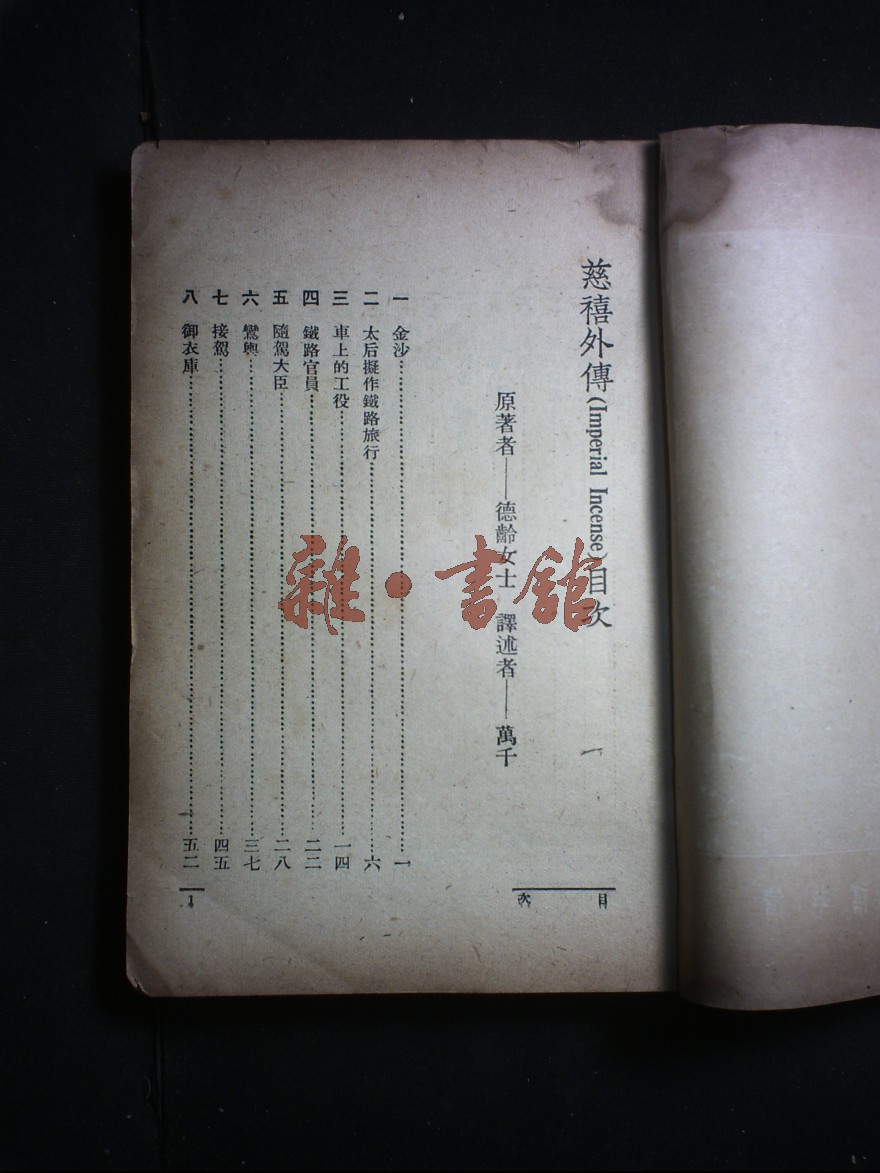 慈禧外傳(Imperial Incense)目次
原著者——德齡女士 譯述者——萬千
一 金沙…………一
二 太后擬作鐵路旅行…………六
三 車上的工役…………一四
四 鐵路官員…………二二
五 隨駕大臣…………二八
六 鸞輿…………三七
七 接駕…………四五
八 御衣庫…………五二
目次
1
雜·書館